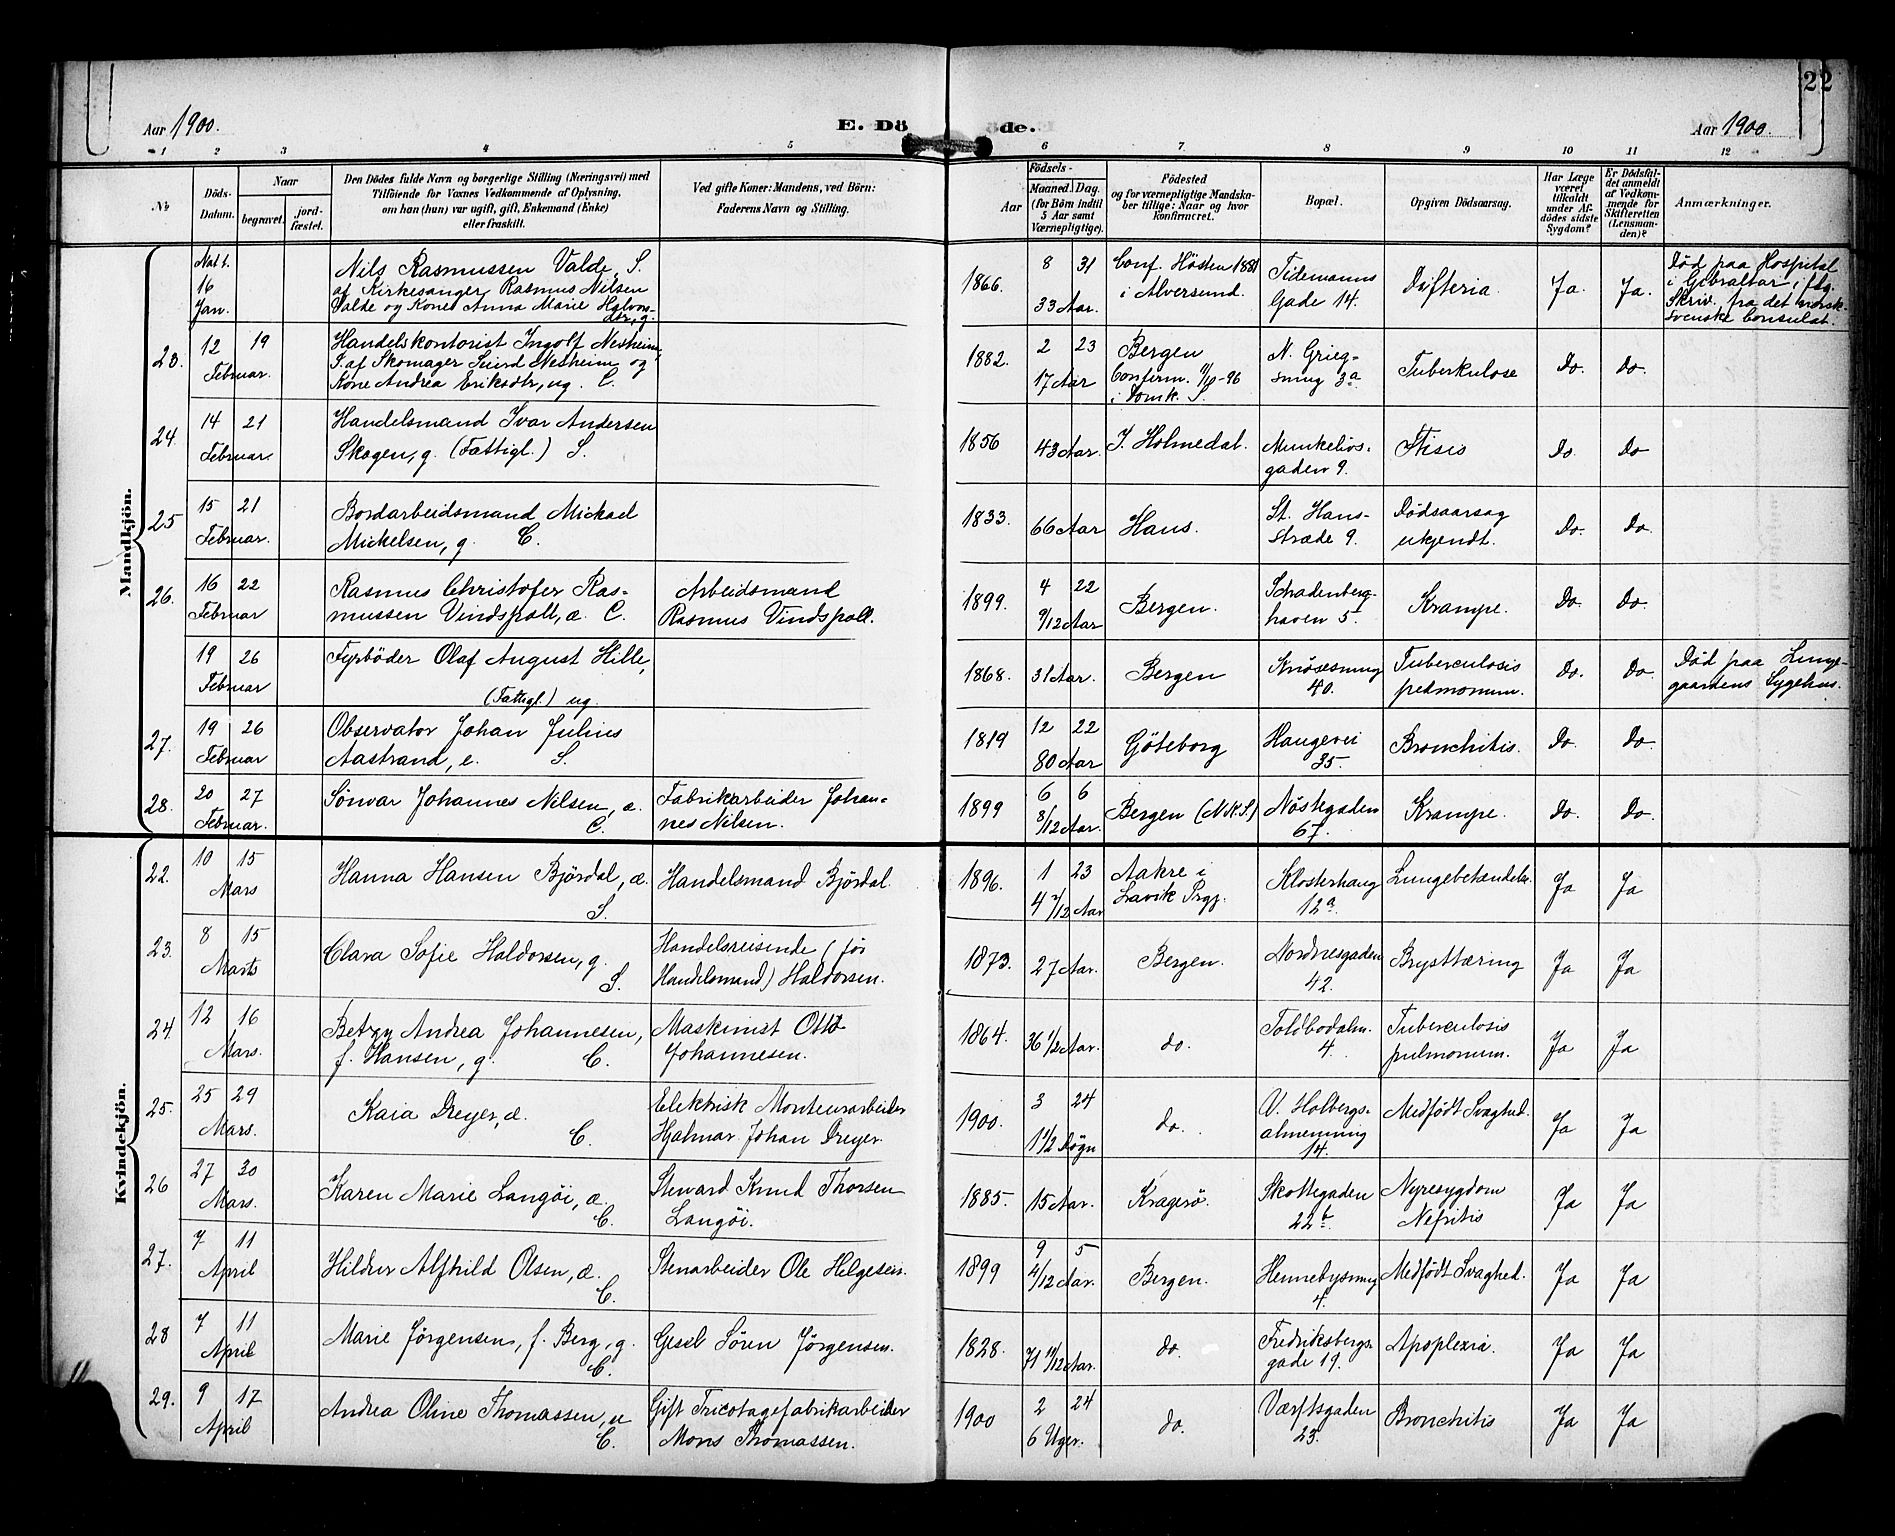 22
Aar 1900.
E. Döde.
Aar 1900.
1 2 3 4 5 6 7 8 9 10 11 12
№
Döds-
Datum.
Naar
begravet.
jord-
fæstet.
Den Dödes fulde Navn og borgerlige Stilling (Næringsvei) med
Tilföiende for Voxnes Vedkommende af Oplysning,
om han (hun) var ugift, gift, Enkemand (Enke)
eller fraskilt.
Ved gifte Koner: Mandens, ved Börn:
Faderens Navn og Stilling.
Aar
Födsels-
Maaned. Dag.
(for Börn indtil
5 Aar samt
Værnepligtige).
Födested
og for værnepligtige Mandska-
ber tillige: Naar og hvor
konfirmeret.
Bopæl.
Opgiven Dödsaarsag.
Har Læge
været
tilkaldt
under Af-
dödes sidste
Sygdom?
Er Dödsfal-
det anmeldt
af Vedkom-
mende for
Skifteretten
(Lensman-
den)?
Anmærkninger.
Mandkjön.
Natt.
16
Jan.
Nils Rasmussen Valde, S.
af Kirkesanger Rasmus Nilsen
Valde og Kone Anna Marie Halvors-
dtr, g.
1866.
8 31
33 Aar.
Conf. Høsten 1881
i Alversund.
Tidemanns
Gade 14.
Difteria.
Ja.
Ja.
Død paa Hospital
i Gibraltar, flg.
Skriv. fra det norsk-
svenske Consulat.
23.
12 19
Februar.
Handelskontorist Ingolf Nesheim,
S. af Skomager Sjurd Nesheim og
Kone Andrea Eriksdtr, ug. C.
1882.
2 23
17 Aar
Bergen
Confirm. 11/10-96
i Domk. S.
N. Grieg-
smug 3a
Tuberkulose
Do.
Do.
24.
14 21
Februar.
Handelsmand Ivar Andersen
Skogen, g. (Fattigl.) S.
1856
43 Aar.
I. Holmedal.
Munkelivs-
gaden 9.
Ftisis
Do.
Do
25
15 21
Februar.
Bordarbeidsmand Mickael
Mickelsen, g. C.
1833.
66 Aar
Haus.
St. Hans-
stræde 9.
Dødsaarsag
ukjendt.
Do.
Do.
26.
16 22
Februar
Rasmus Christofer Ras-
mussen Vindspoll, æ. C.
Arbeidsmand
Rasmus Vindspoll.
1899.
4 22
9/12 Aar
Bergen.
Schadenberg-
haven 5.
Krampe.
Do.
Do.
19 26
Februar
Fyrbøder Olaf August Hille,
(Fattigl.) ug.
1868.
31 Aar.
Bergen
Knøsesmug
40.
Tuberculosis
pulmonum.
Do.
Do.
Død paa Lunge-
gaardens Sygehus.
27.
19 26
Februar
Observator Johan Julius
Aastrand, e. S.
1819
12 22
80 Aar
Göteborg
Haugevei
35.
Bronchitis.
Do.
Do.
28.
20 27
Februar.
Sönvar Johannes Nilsen, æ.
C.
Fabrikarbeider Johan-
nes Nilsen.
1899
6 6
8/12 Aar.
Bergen (N.K.S.)
Nøstegaden
67.
Krampe.
Do.
Do.
Kvindekjön.
22.
10 15
Mars
Hanna Hansen Björdal, æ.
S.
Handelsmand Björdal.
1896.
1 23
Aakre i
Lavik Prgj.
Klosterhaug
12a.
Lungebetændelse.
Ja
Ja
23.
8 15
Marts
Clara Sofie Haldorsen, g.
S.
Handelsreisende (før
Handelsmand) Haldorsen.
1873.
27 Aar.
Bergen.
Nordnesgaden
42.
Brysttæring
Ja
Ja
24.
12 16
Mars.
Betzy Andrea Johannesen,
f. Hansen, g. C.
Maskinist Otto
Johannesen.
1864.
36 1/2 Aar.
do.
Toldbodalm.
4.
Tuberculosis
pulmonum.
Ja
Ja
25.
25 29
Mars.
Kaia Dreyer, æ.
C.
Elektrisk Monteurarbeider
Hjalmar Johan Dreyer.
1900.
3 24
1 1/2 Døgn
do.
V. Holbergs-
almenning
14.
Medfødt Svaghed.
Ja
Ja
26
27 30
Mars.
Karen Marie Langöi, æ.
C.
Steward Knud Thorsen
Langöi.
1885.
15 Aar.
Kragerö.
Skottegaden
22b.
Nyresygdom
Nefritis
Ja
Ja
27.
7 11
April
Hildur Alfhild Olsen, æ.
C.
Stenarbeider Ole Helgesen.
1899
9 5
4/12 Aar.
Bergen.
Hennebysmug
4.
Medfødt Svaghed.
Ja
Ja
28
7 11
April
Marie Jørgensen, f. Berg, g.
C.
Gesel Sören Jørgensen.
1828.
71 11/12 Aar.
do.
Fredriksbergs-
gade 19.
Apoplexia.
Ja
Ja
29.
9 17
April
Andrea Oline Thomassen, u
C.
Gift Tricotagefabrikarbeider
Mons Thomassen.
1900
2 24
6 Uger.
do.
Værftsgaden
23.
Bronchitis
Ja
Ja